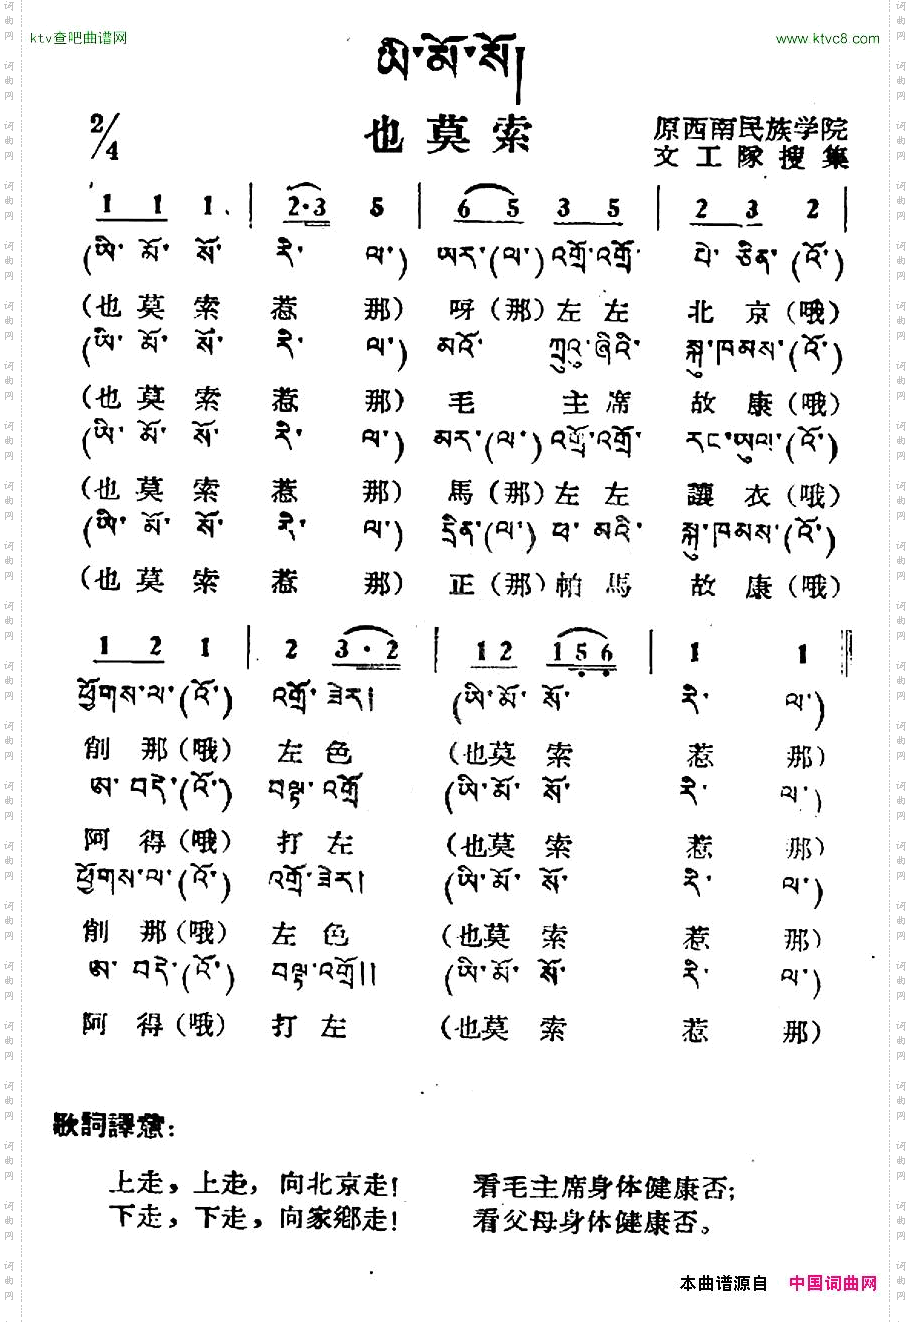 ktv查吧曲谱网
www.ktvc8.com
ཨི་མོ་སོ།
2/4
也莫索
原西南民族学院
文工隊搜集
1 1 1 | 2·3 5 | 6 5 3 5 | 2 3 2 |
(ཨི་ མོ་ སོ་ རི་ ལ་) ཨར་(ལ་)འགྲོ་འགྲོ་ པེ་ ཅིན་ (འོ་)
(也莫索惹那)呀(那)左左北京(哦)
(ཨི་ མོ་ སོ་ རི་ ལ་) མའོ་ ཀྲུའུ་ཞིའི་ སྐུ་ཁམས་(འོ་)
(也莫索惹那)毛主席故康(哦)
(ཨི་ མོ་ སོ་ རི་ ལ་) མར་(ལ་)འགྲོ་འགྲོ་ རང་ཡུལ་(འོ་)
(也莫索惹那)馬(那)左左讓衣(哦)
(ཨི་ མོ་ སོ་ རི་ ལ་) དྲིན་(ལ་) ཕ་ མའི་ སྐུ་ཁམས་(འོ་)
(也莫索惹那)正(那)帕馬故康(哦)
1 2 1 | 2 3·2 | 1 2 1 5 6 | 1 1 ‖
ཕྱོགས་ལ་(འོ་) འགྲོ་ཟེར། (ཨི་མོ་ སོ་ རི་ ལ་)
削那(哦)左色(也莫索惹那)
ཨ་ བདེ་(འོ་) བལྟ་འགྲོ (ཨི་མོ་ སོ་ རི་ ལ་)
阿得(哦)打左(也莫索惹那)
ཕྱོགས་ལ་(འོ་) འགྲོ་ཟེར། (ཨི་མོ་ སོ་ རི་ ལ་)
削那(哦)左色(也莫索惹那)
ཨ་ བདེ་(འོ་) བལྟ་འགྲོ།། (ཨི་མོ་ སོ་ རི་ ལ་)
阿得(哦)打左(也莫索惹那)
歌詞譯意:
上走，上走，向北京走! 看毛主席身体健康否;
下走，下走，向家鄉走! 看父母身体健康否。
本曲谱源自 中国词曲网